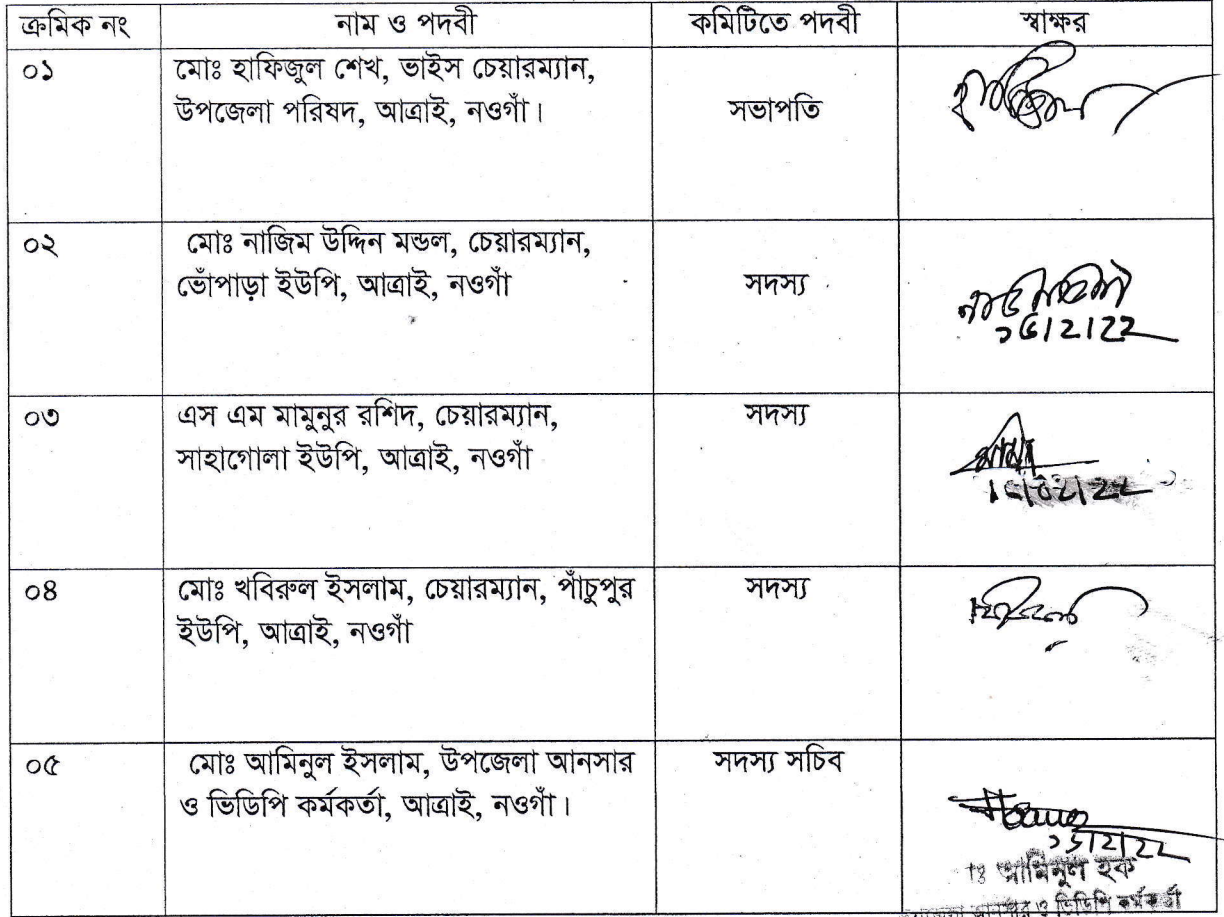 ক্রমিক নং নাম ও পদবী কমিটিতে পদবী স্বাক্ষর
০১ মোঃ হাফিজুল শেখ, ভাইস চেয়ারম্যান,
উপজেলা পরিষদ, আত্রাই, নওগাঁ। সভাপতি
০২ মোঃ নাজিম উদ্দিন মন্ডল, চেয়ারম্যান,
ভোঁপাড়া ইউপি, আত্রাই, নওগাঁ সদস্য
০৩ এস এম মামুনুর রশিদ, চেয়ারম্যান, সদস্য
সাহাগোলা ইউপি, আত্রাই, নওগাঁ
০৪ মোঃ খবিরুল ইসলাম, চেয়ারম্যান, পাঁচুপুর সদস্য
ইউপি, আত্রাই, নওগাঁ
০৫ মোঃ আমিনুল ইসলাম, উপজেলা আনসার সদস্য সচিব
ও ভিডিপি কর্মকর্তা, আত্রাই, নওগাঁ।
আমিনুল হক
ও ভিডিপি কর্মকর্তা